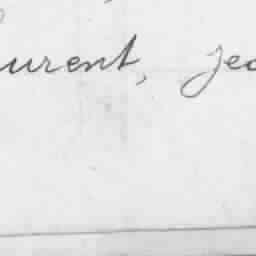 urent, jea